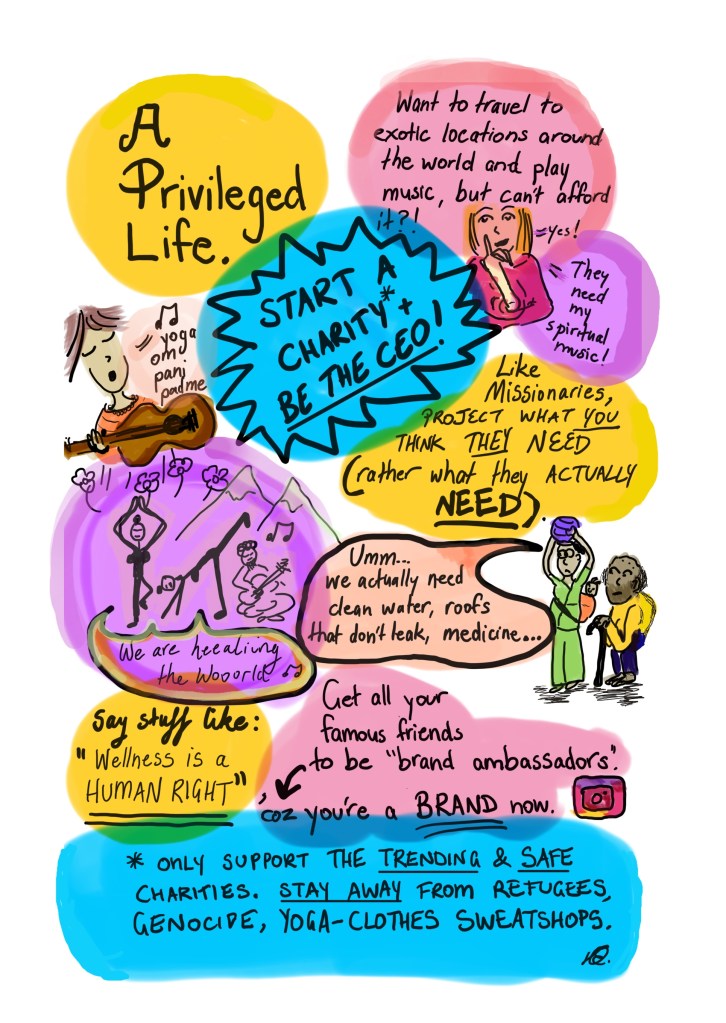 A
Privileged
Life.
Want to travel to
exotic locations around
the world and play
music, but can't afford
it?!
=yes!
They
need
my
spiritual
music!
START A
CHARITY* +
BE THE CEO!
yoga
om
pani
padme
Like
Missionaries,
PROJECT WHAT YOU
THINK THEY NEED
(rather what they ACTUALLY
NEED).
Umm...
we actually need
clean water, roofs
that don't leak, medicine...
We are heealiing
the Wooorld
Say stuff like:
"Wellness is a
HUMAN RIGHT"
Get all your
famous friends
to be "brand ambassadors".
, coz you're a BRAND now.
* ONLY SUPPORT THE TRENDING & SAFE
CHARITIES. STAY AWAY FROM REFUGEES,
GENOCIDE, YOGA-CLOTHES SWEATSHOPS.